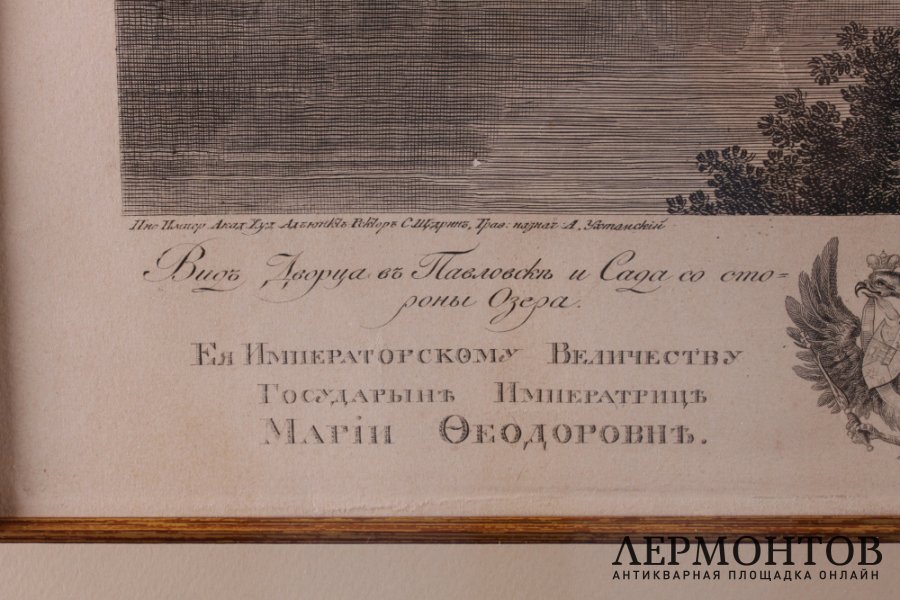 Пис Импер Акад Худ Адъюнктъ Ректоръ С. Щедринъ, Грав: назнач: А. Ухтамскій
Видъ Дворца въ Павловскѣ и Сада со сто=
роны Озера.
Ея Императорскому Величеству
Государынѣ Императрицѣ
Маріи Ѳеодоровнѣ.
ЛЕРМОНТОВ
АНТИКВАРНАЯ ПЛОЩАДКА ОНЛАЙН